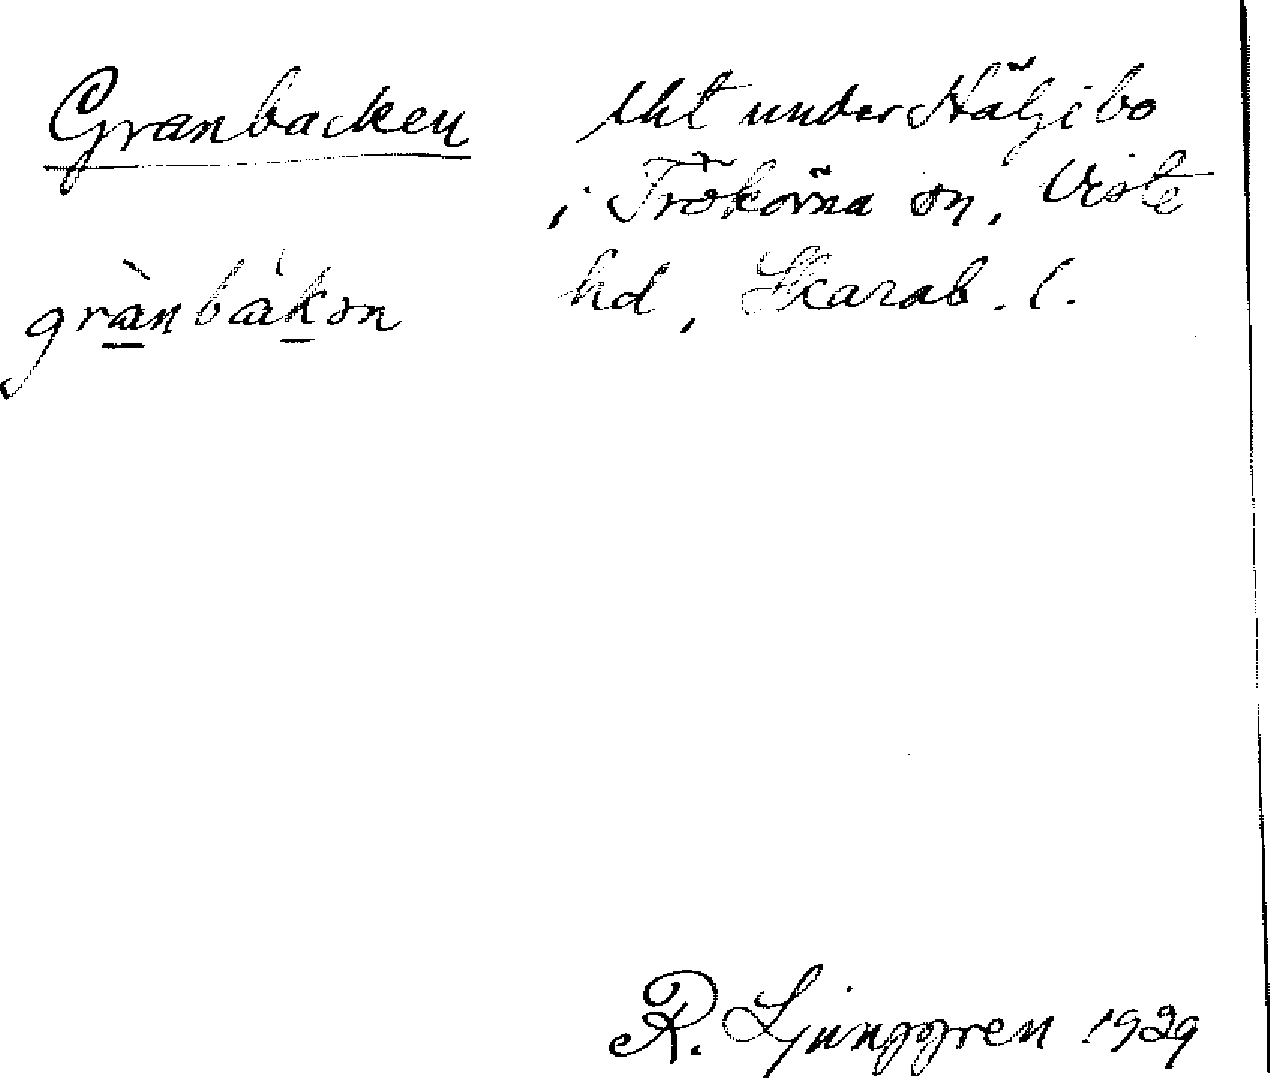 Granbacken lht under Hälgebo
i Trökörna sn, Viste
grànbákən hd, Skarab. l.
R. Ljunggren 1929